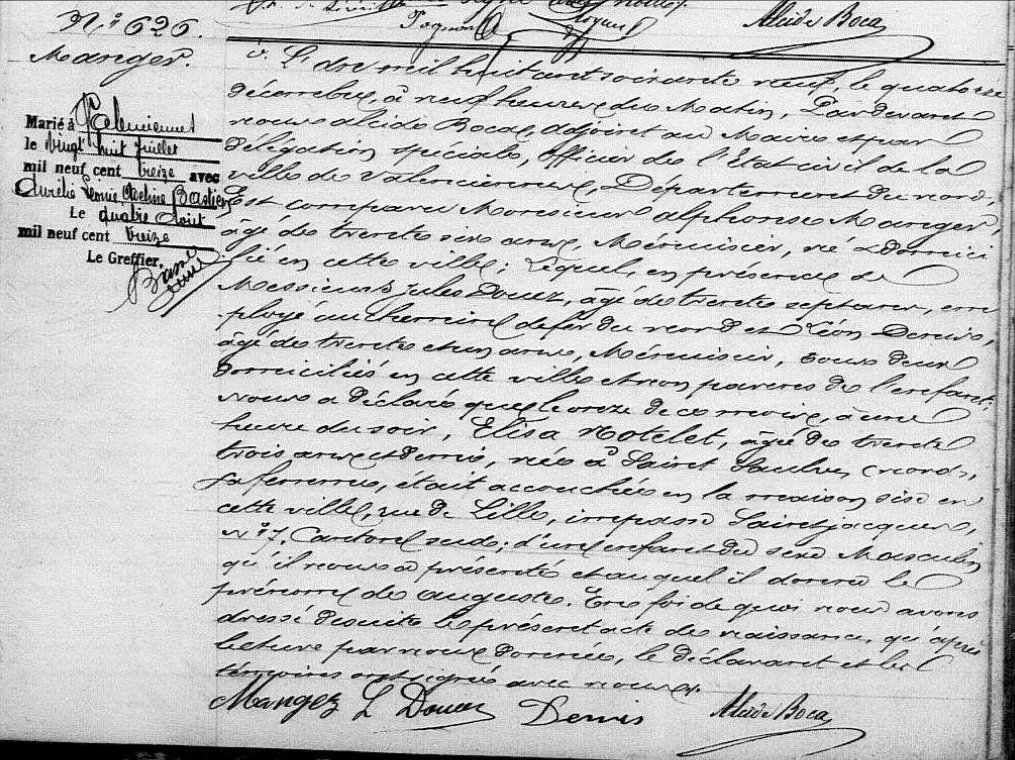 Alcide Boca
N° 626.
Manger.
Marié à Valenciennes
le vingt huit juillet
mil neuf cent treize avec
Aurélie Léonie Bastien
Le quatre Août
mil neuf cent treize
Le Greffier,
L'an mil huit cent soixante neuf, le quatorze
décembre, à neuf heures du Matin, Pardevant
nous alcide Boca, adjoint au Maire et par
délégation spéciale, Officier de l'Etat civil de la
ville de Valenciennes, Département du nord,
Est comparu Monsieur alphonse Manger,
âgé de trente six ans, Ménuisier, né & domici
lié en cette ville; Lequel, en présence de
Messieurs Jules Douez, âgé de trente sept ans, em
ployé au chemin de fer du nord et Léon Denis,
âgé de trente et un ans, Ménuisier, tous deux
domiciliés en cette ville et non parens de l'enfant;
Nous a déclaré que le onze de ce mois, à une
heure du soir, Elisa Motelet, âgée de trente
trois ans et demi, née à Saint Saulve (nord),
sa femme, était accouchée en la maison sise en
cette ville, rue de Lille, impasse Saint jacques,
N° 7, Canton sud; d'un enfant du sexe Masculin
qu'il nous a présenté et auquel il donne le
prénom de auguste. En foi de quoi nous avons
dressé desuite le présent acte de naissance, qu'après
lecture par nous donnée, le déclarant et les
témoins ont signé avec nous.
Mangez L Douez Denis Alcide Boca